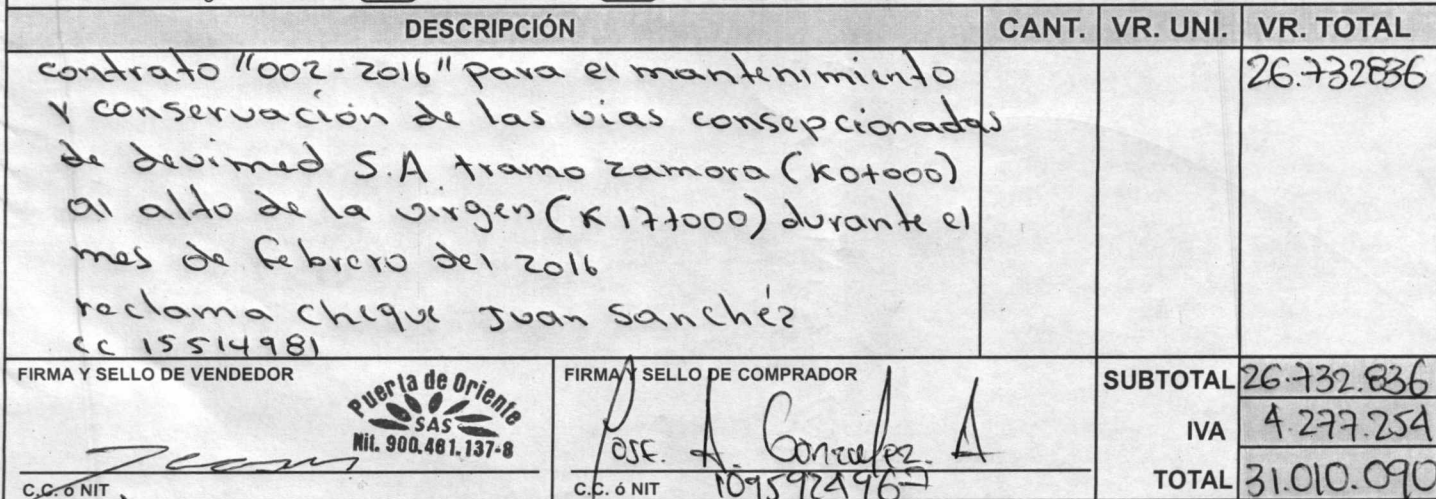 DESCRIPCIÓN CANT. VR. UNI. VR. TOTAL
contrato "002-2016" para el mantenimiento 26.732836
y conservación de las vias consepcionadas
de devimed S.A tramo zamora (K0+000)
al alto de la virgen (K17+000) durante el
mes de febrero del 2016
reclama cheque Juan Sanchéz
cc 15514981
FIRMA Y SELLO DE VENDEDOR
Puerta de Oriente
SAS
Nit. 900.461.137-8
C.C. ó NIT
FIRMA Y SELLO DE COMPRADOR
Jose. A. Gonzalez. A
C.C. ó NIT 1095924967
SUBTOTAL 26.732.836
IVA 4.277.254
TOTAL 31.010.090